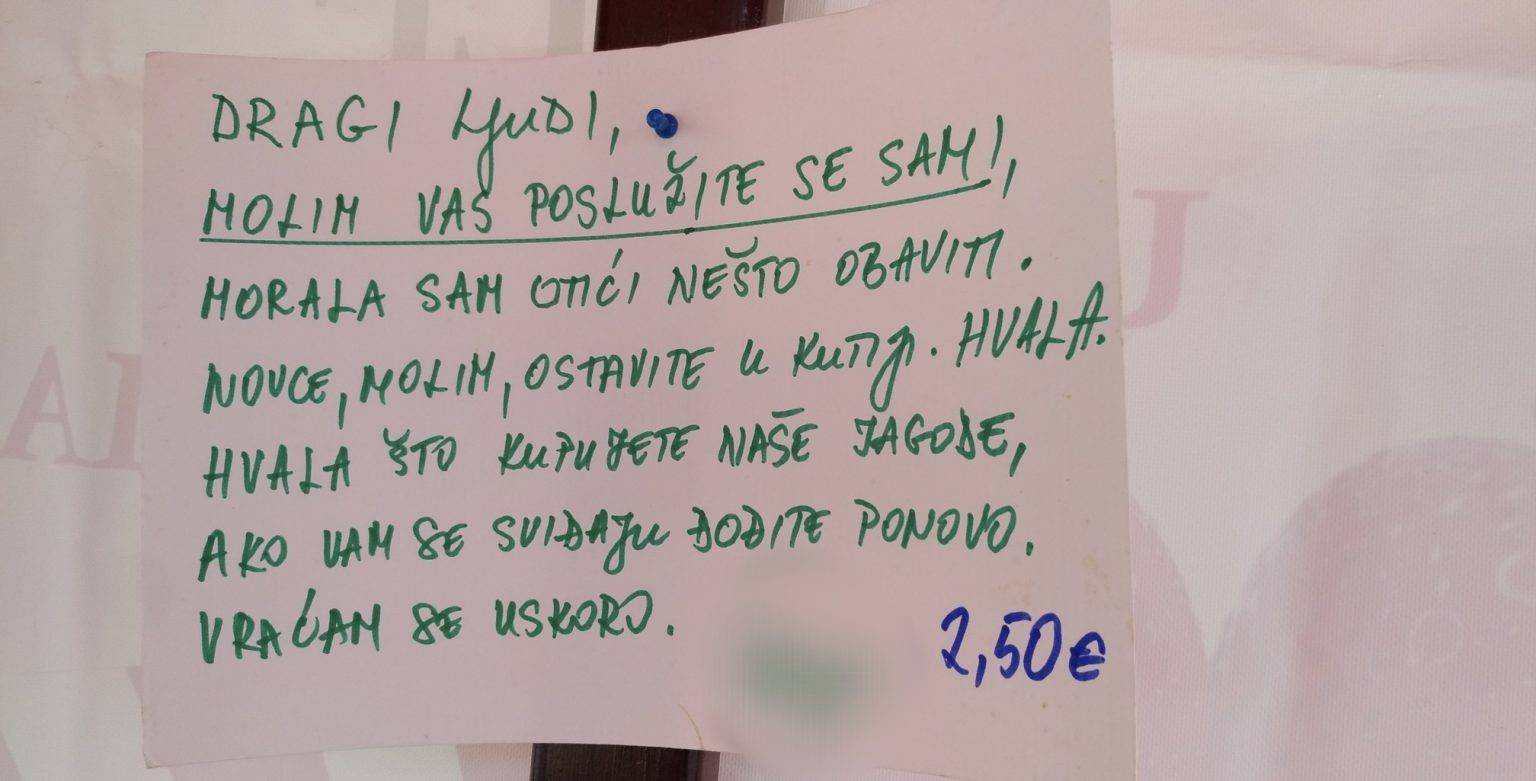 DRAGI LJUDI,
MOLIM VAS POSLUŽITE SE SAMI,
MORALA SAM OTIĆI NEŠTO OBAVITI.
NOVCE, MOLIM, OSTAVITE U KUTIJI. HVALA.
HVALA ŠTO KUPUJETE NAŠE JAGODE,
AKO VAM SE SVIĐAJU ĐOĐITE PONOVO.
VRAĆAM SE USKORO.
2,50€